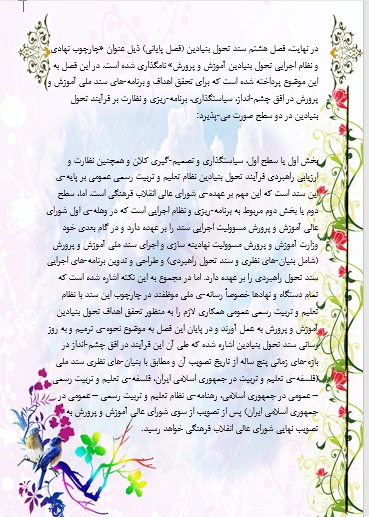 در نهایت، فصل هشتم سند تحول بنیادین (فصل پایانی) ذیل عنوان «چارچوب نهادی
و نظام اجرایی تحول بنیادین آموزش و پرورش» نامگذاری شده است. در این فصل به
این موضوع پرداخته شده است که برای تحقق اهداف و برنامه-های سند ملی آموزش و
پرورش در افق چشم-انداز، سیاستگذاری، برنامه-ریزی و نظارت بر فرآیند تحول
بنیادین در دو سطح صورت می-پذیرد:
بخش اول یا سطح اول، سیاستگذاری و تصمیم-گیری کلان و همچنین نظارت و
ارزیابی راهبردی فرآیند تحول بنیادین نظام تعلیم و تربیت رسمی عمومی بر پایه-ی
این سند است که این مهم بر عهده-ی شورای عالی انقلاب فرهنگی است. اما، سطح
دوم یا بخش دوم مربوط به برنامه-ریزی و نظام اجرایی است که در وهله-ی اول شورای
عالی آموزش و پرورش مسوولیت اجرایی سند را بر عهده دارد و در گام بعدی خود
وزارت آموزش و پرورش مسوولیت نهادینه سازی و اجرای سند ملی آموزش و پرورش
(شامل بنیان-های نظری و سند تحول راهبردی) و طراحی و تدوین برنامه-های اجرایی
سند تحول راهبردی را بر عهده دارد. اما در مجموع به این نکته اشاره شده است که
تمام دستگاه و نهادها خصوصاً رسانه-ی ملی موظفند در چارچوب این سند با نظام
تعلیم و تربیت رسمی عمومی همکاری لازم را به منظور تحقق اهداف تحول بنیادین
آموزش و پرورش به عمل آورند و در پایان این فصل به موضوع نحوه-ی ترمیم و به روز
رسانی سند تحول بنیادین اشاره شده که طی آن این فرآیند در افق چشم-انداز در
بازه-های زمانی پنج ساله از تاریخ تصویب آن و مطابق با بنیان-های نظری سند ملی
(فلسفه-ی تعلیم و تربیت در جمهوری اسلامی ایران، فلسفه-ی تعلیم و تربیت رسمی
– عمومی در جمهوری اسلامی، رهنامه-ی نظام تعلیم و تربیت رسمی – عمومی در
جمهوری اسلامی ایران) پس از تصویب از سوی شورای عالی آموزش و پرورش به
تصویب نهایی شورای عالی انقلاب فرهنگی خواهد رسید.